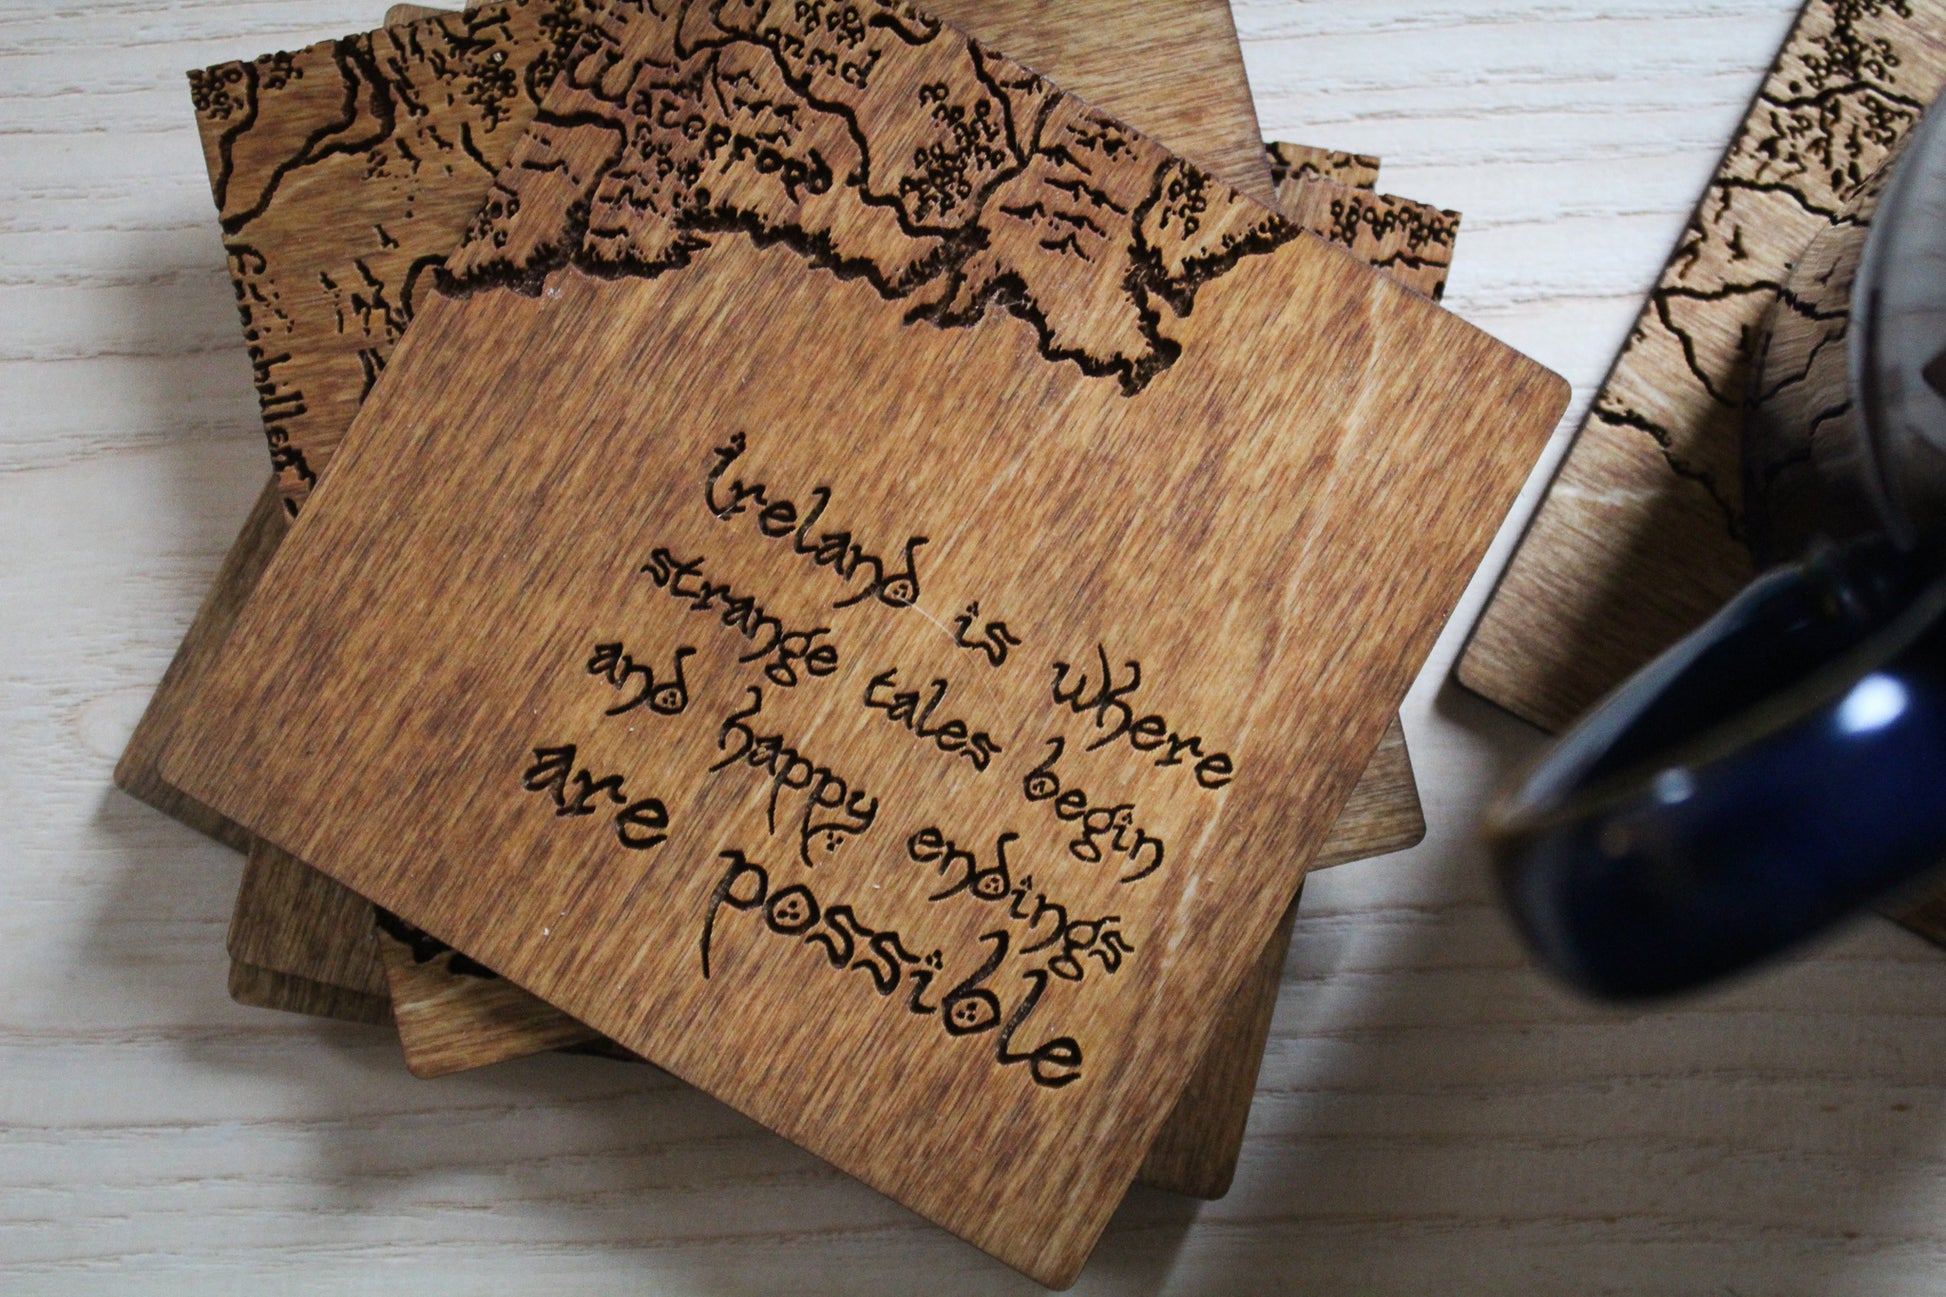 Waterford
Ireland is where
strange tales begin
and happy endings
are possible